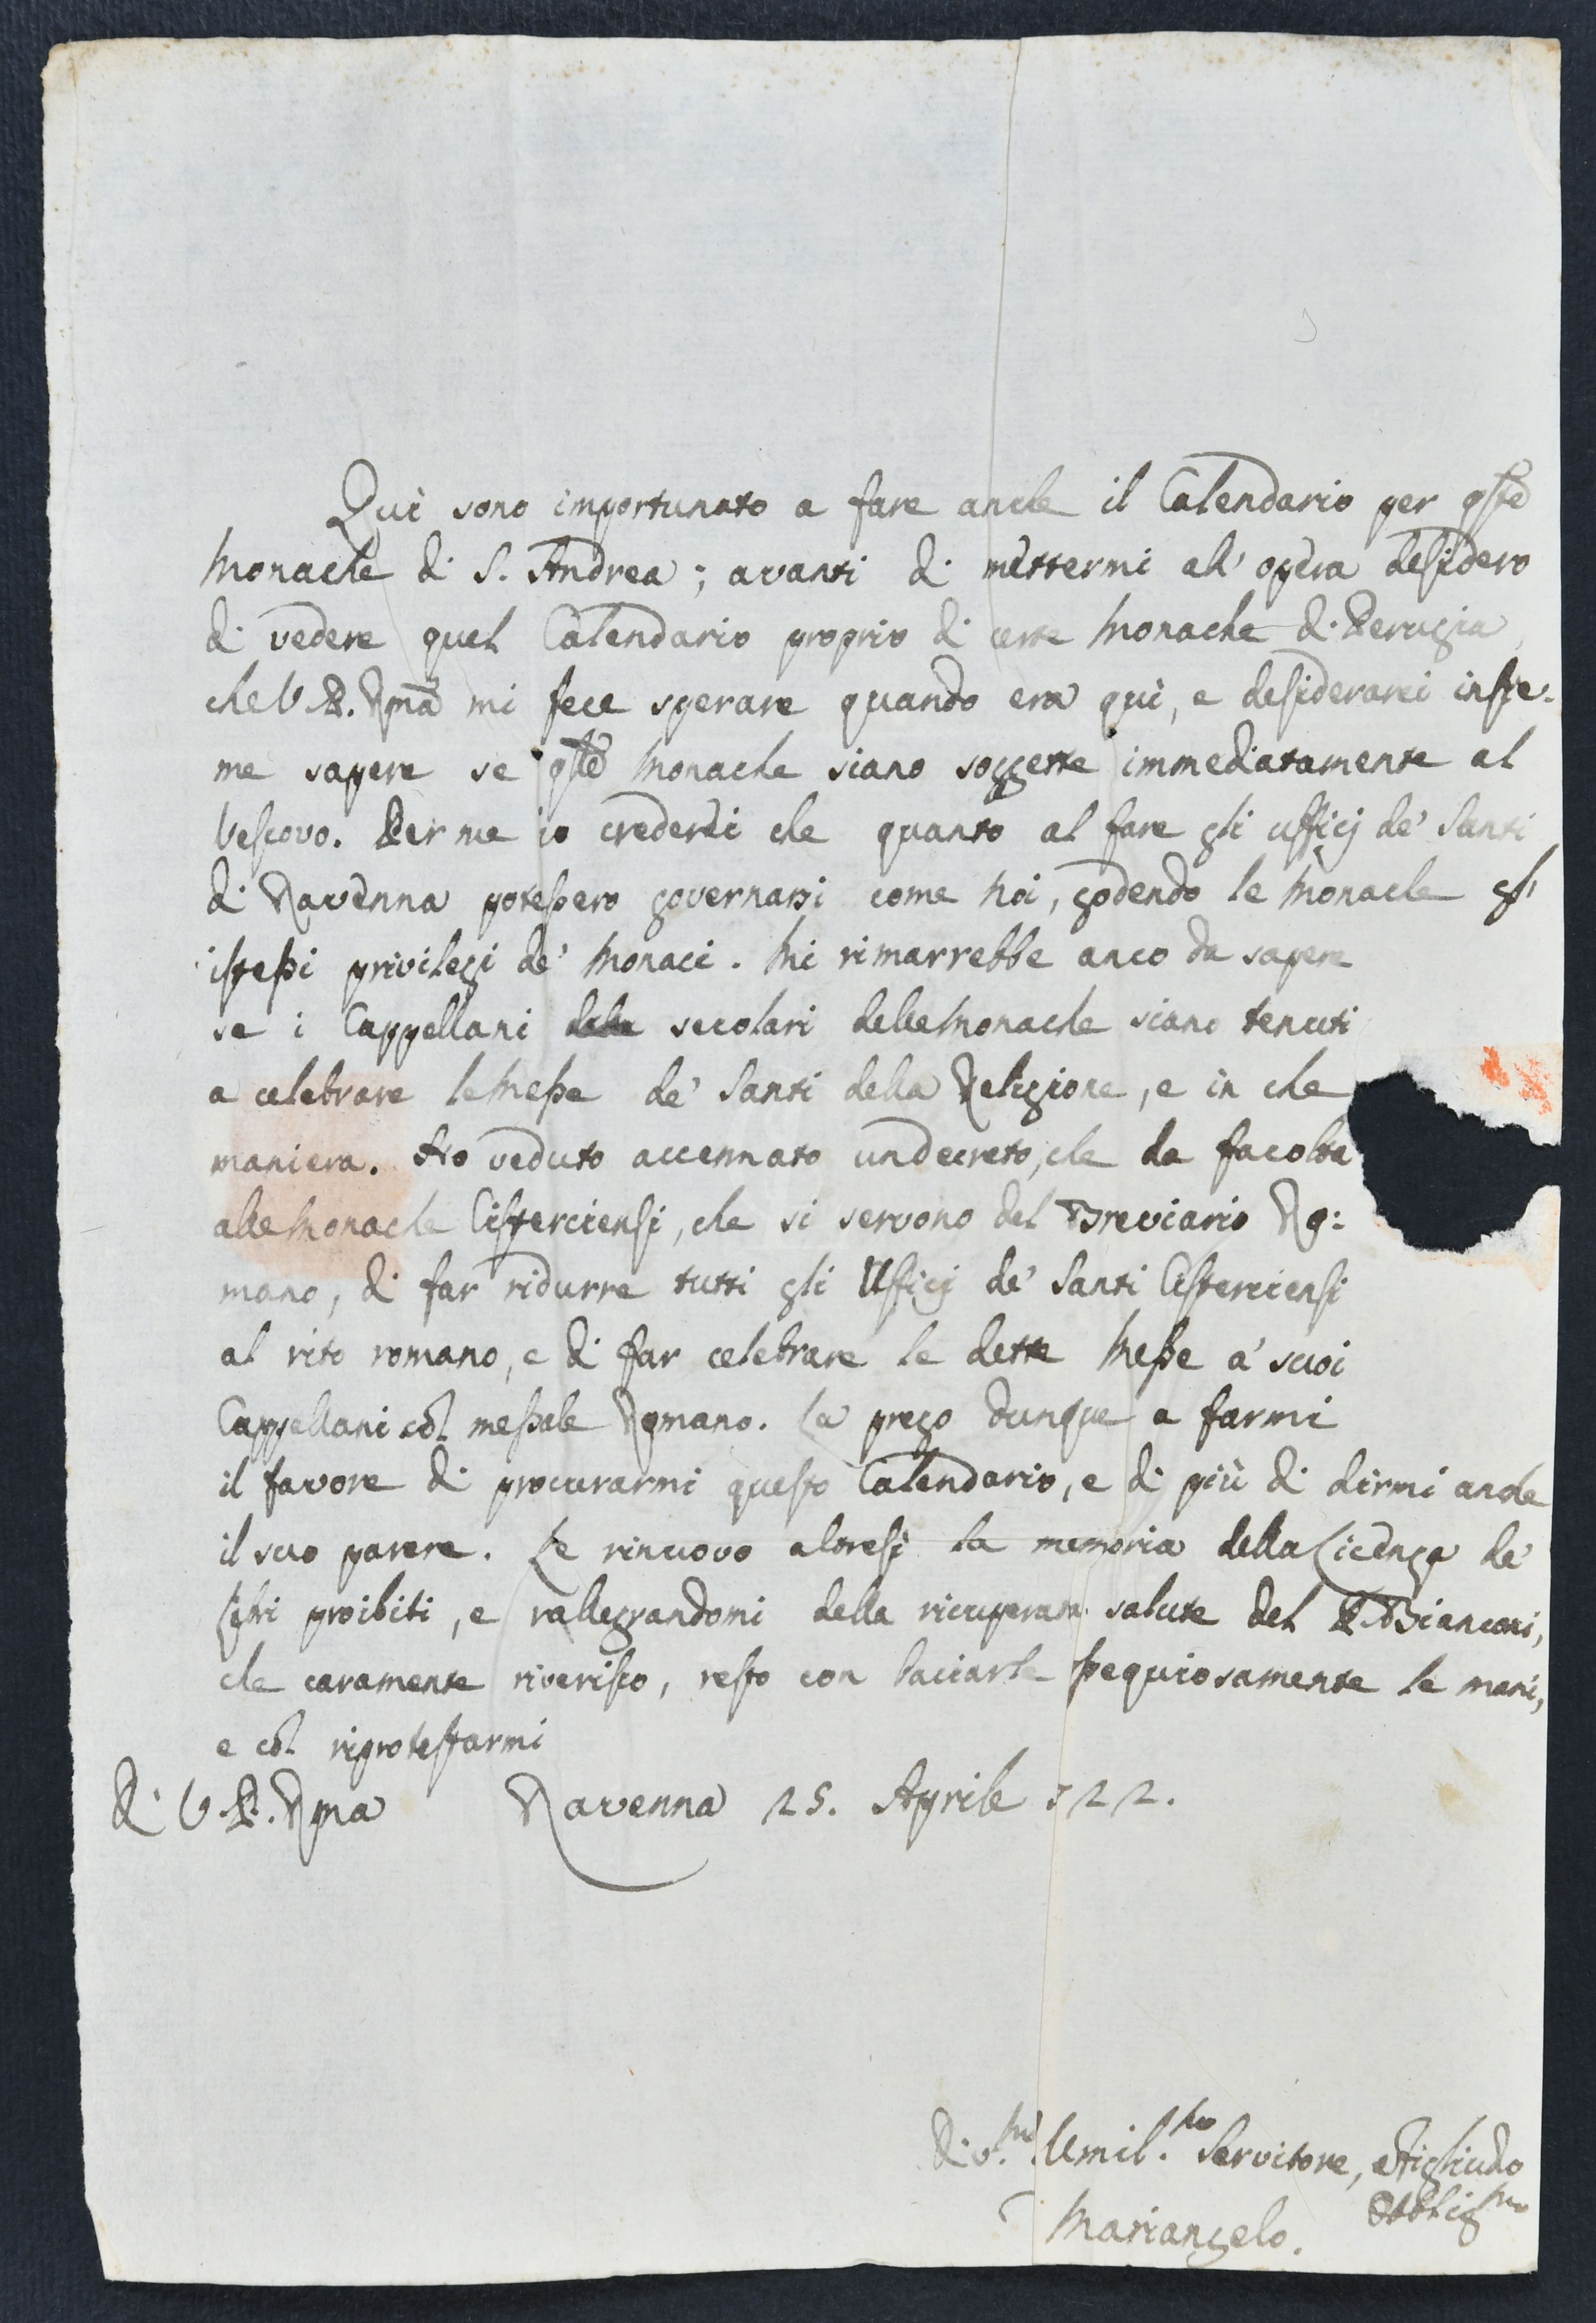 Quì sono importunato a fare anche il Calendario per qste
Monache di S. Andrea; avanti di mettermi all' opera desidero
di vedere quel Calendario proprio di certe Monache di Perugia
che V. P. Rma mi fece sperare quando era quì, e desiderarei insie-
me sapere se qste Monache siano soggette immediatamente al
Vescovo. Per me io crederei che quanto al fare gli ufficj de' Santi
di Ravenna potessero governarsi come noi, godendo le Monache gl'
istessi privilegi de' Monaci. Mi rimarrebbe anco da sapere
se i Cappellani secolari delle Monache siano tenuti
a celebrare le Messe de' Santi della Religione, e in che
maniera. Ho veduto accennato un decreto, che da facolta
alle Monache Cisterciensi, che si servono del Breviario Ro:
mano, di far ridurre tutti gli Ufficj de' Santi Cisterciensi
al rito romano, e di far celebrare le dette Messe a' suoi
Cappellani col messale Romano. La prego dunque a farmi
il favore di procurarmi questo Calendario, e di più di dirmi anche
il suo parere. Le rinuovo altresì la memoria della Licenza de'
libri proibiti, e rallegrandomi della ricuperata salute del P. Bianconi,
che caramente riverisco, resto con baciarle ossequiosamente le mani,
e col riprotestarmi
Di V. P. Rma Ravenna 25. Aprile 722.
Umil.mo Servitore, e Figliuolo
Obblig.mo
Mariangelo.